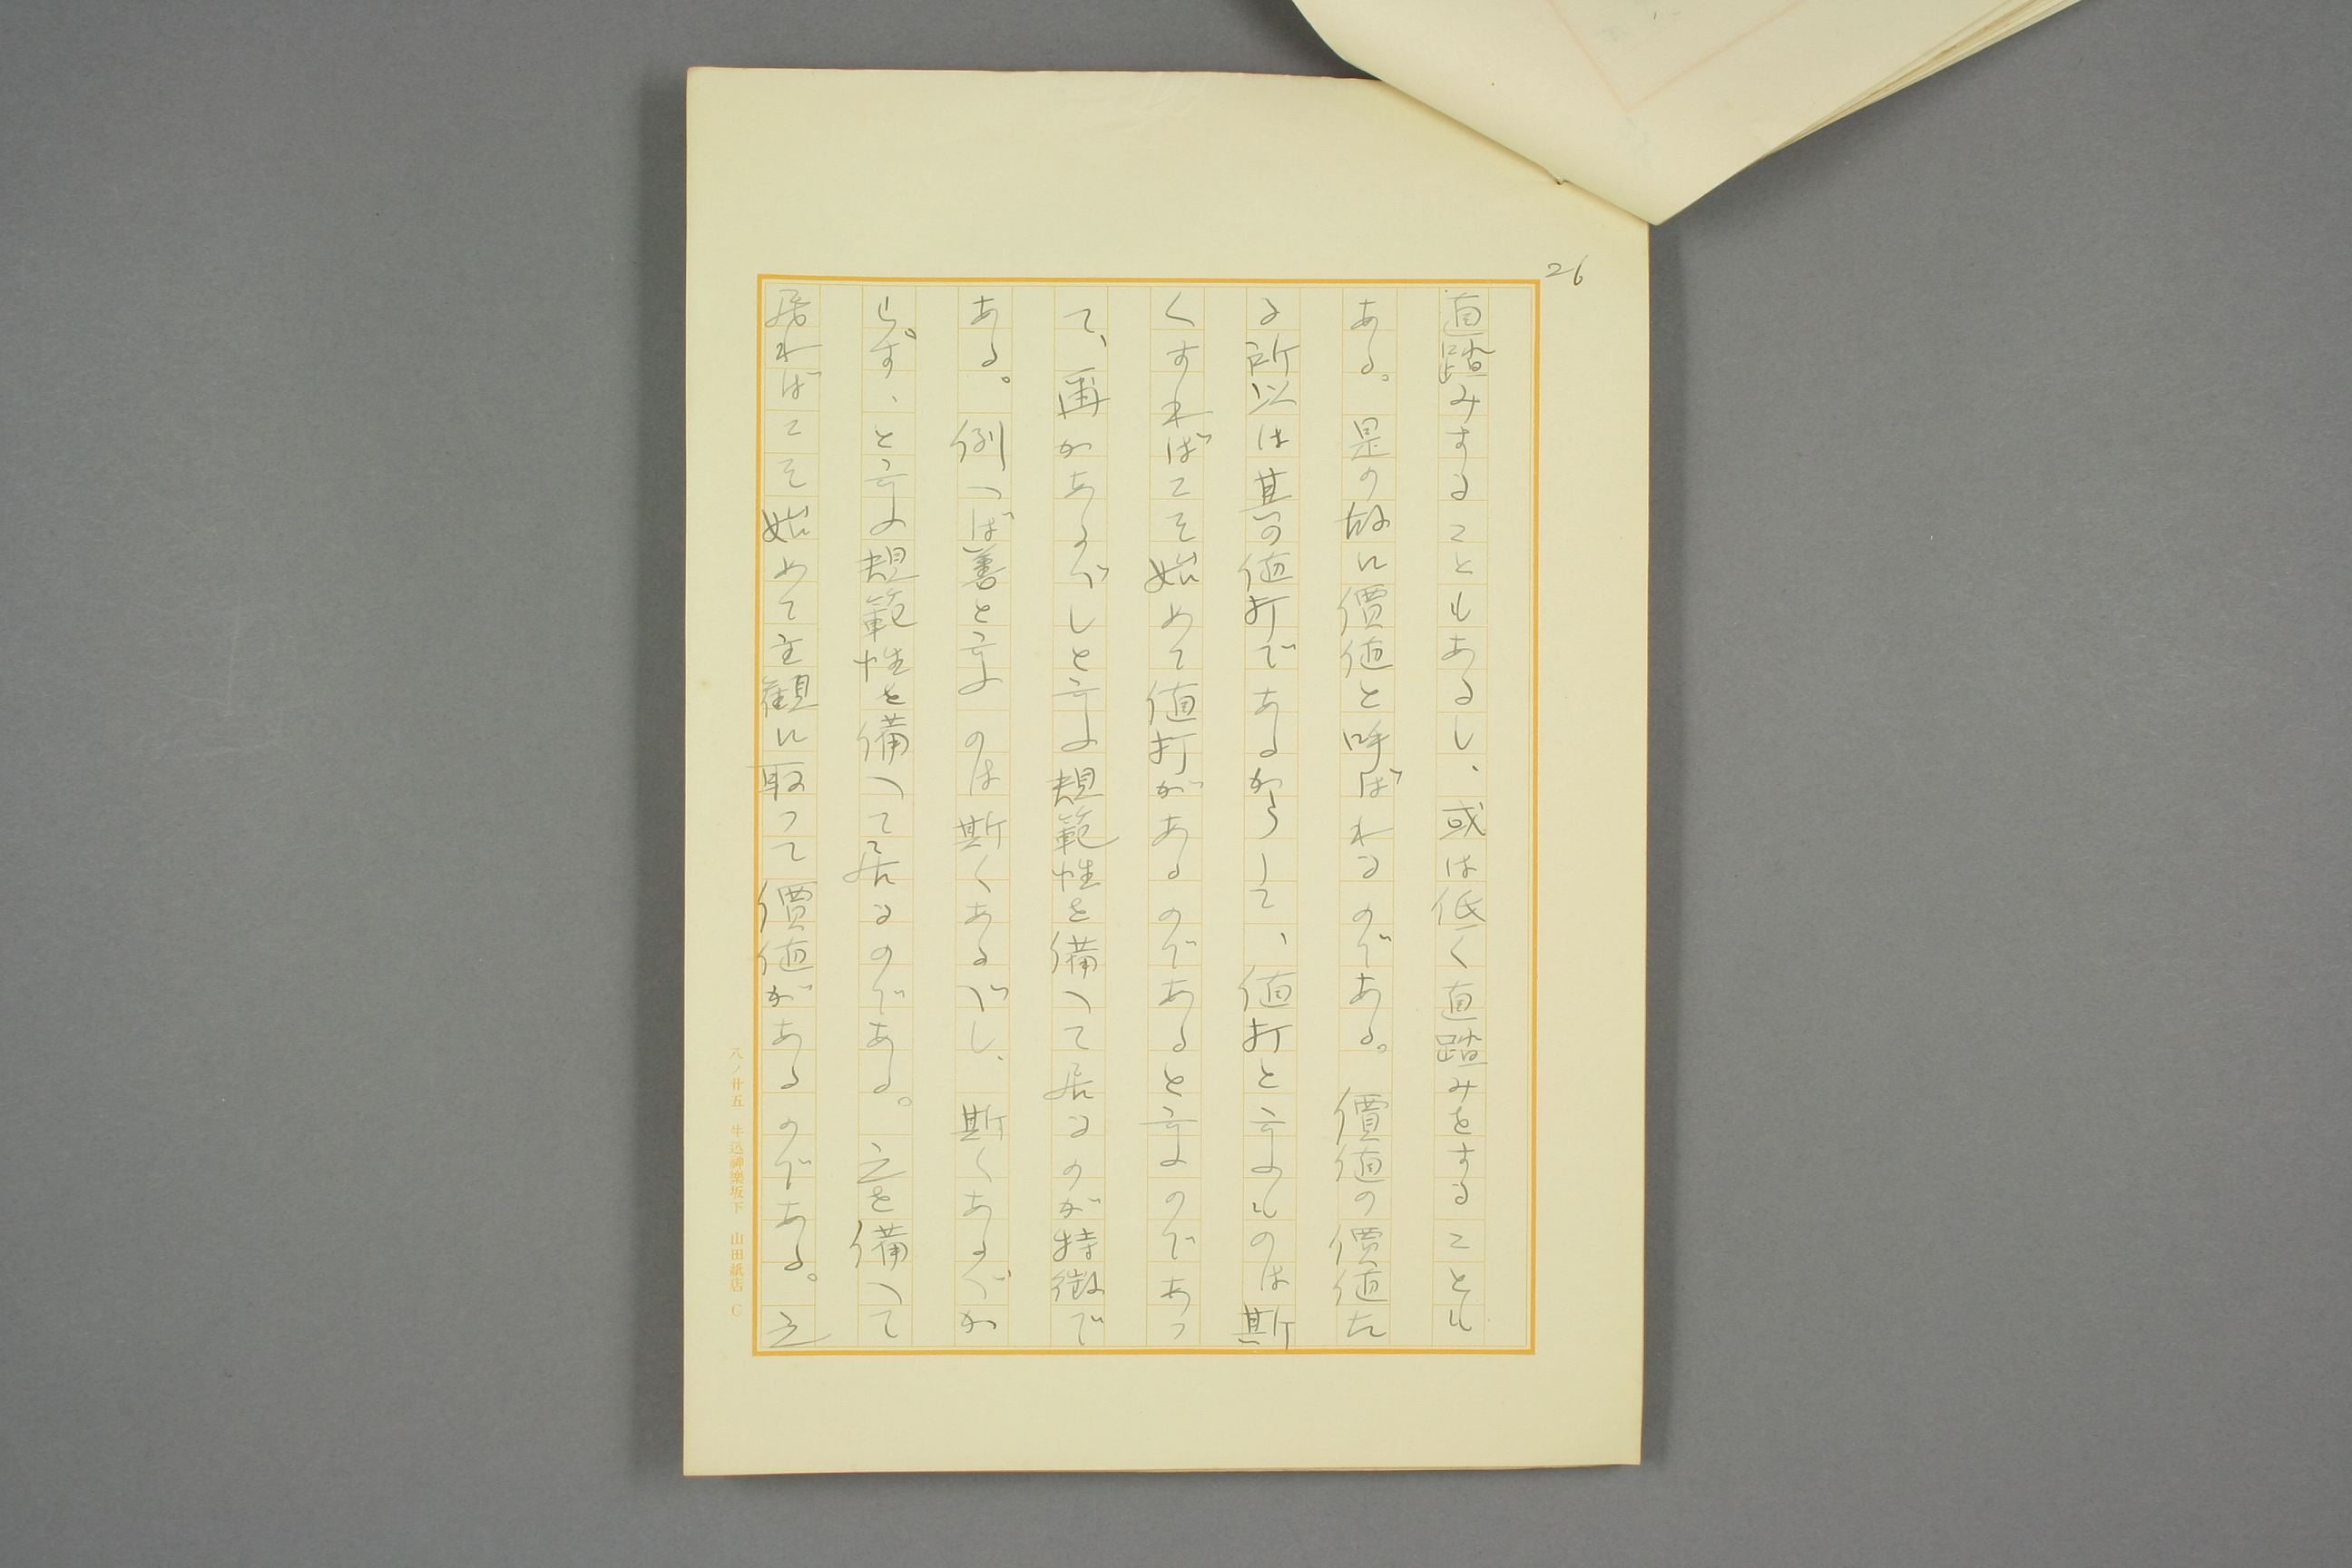 26
直踏みすることもあるし、或は低く直踏みをすることも
ある。是の故に價値と呼ばれるのである。價値の價値た
る所以は其の値打であるからして、値打と云ふものは斯
くすればこそ始めて値打があるのであると云ふのであつ
て、再かあるべしと云ふ規範性を備へて居るのが特徴で
ある。例へば善と云ふのは斯くあるべし、斯くあるべか
らず、と云ふ規範性を備へて居るのである。之を備へて
居ればこそ始めて主観に取つて價値があるのである。之
八ノ廿五 牛込神樂坂下 山田紙店 C